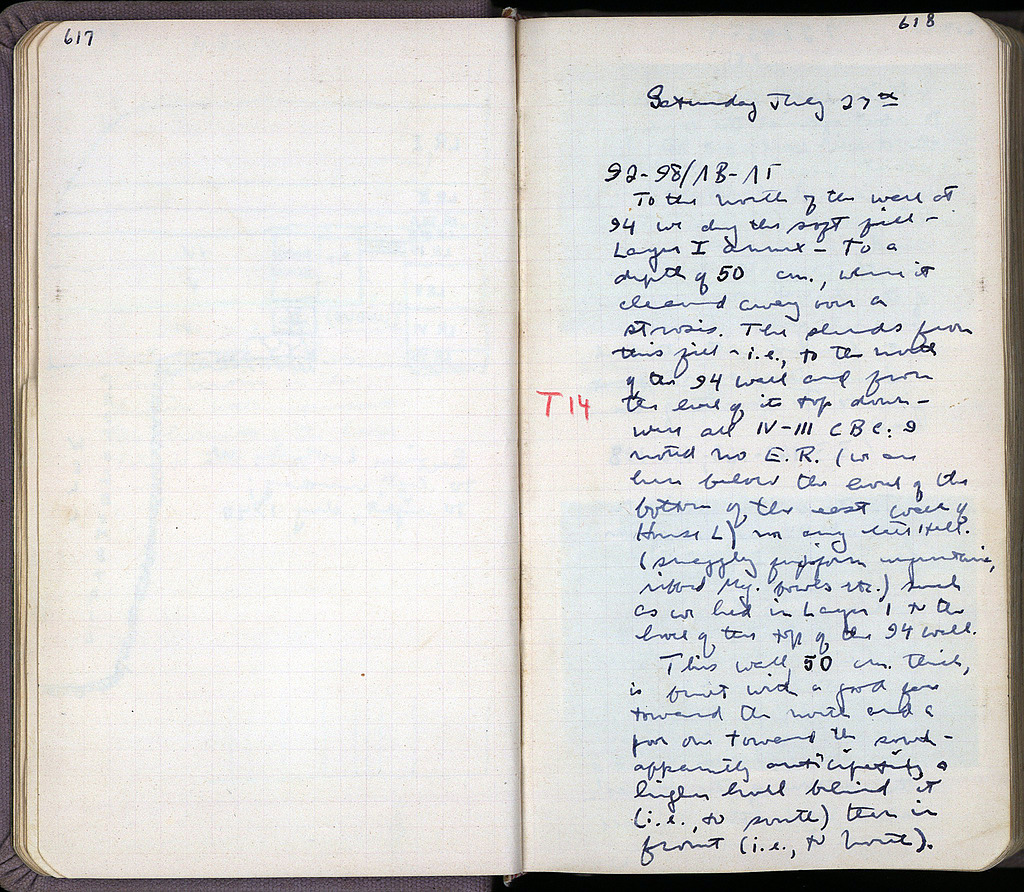 617
618
Saturday July 27th
92-98/ΛB-ΛΓ
To the north of the wall at
94 we dug the soft fill -
Layer I annex - To a
depth of 50 cm., where it
cleaned away over a
strosis. The sherds from
this fill - i.e., to the north
of the 94 wall and from
the level of its top down -
T 14
were all IV-III C BC: I
noted no E.R. (we are
here below the level of the
bottom of the east wall of
House L) nor any late Hell.
(straggly fusiform unguentaria,
ribbed Meg. bowls etc.) such
as we had in Layer I to the
level of the top of the 94 wall.
This wall, 50 cm. thick,
is built with a good face
toward the north and a
poor one toward the south -
apparently anticipating a
higher level behind it
(i.e., to south) than in
front (i.e., to north).